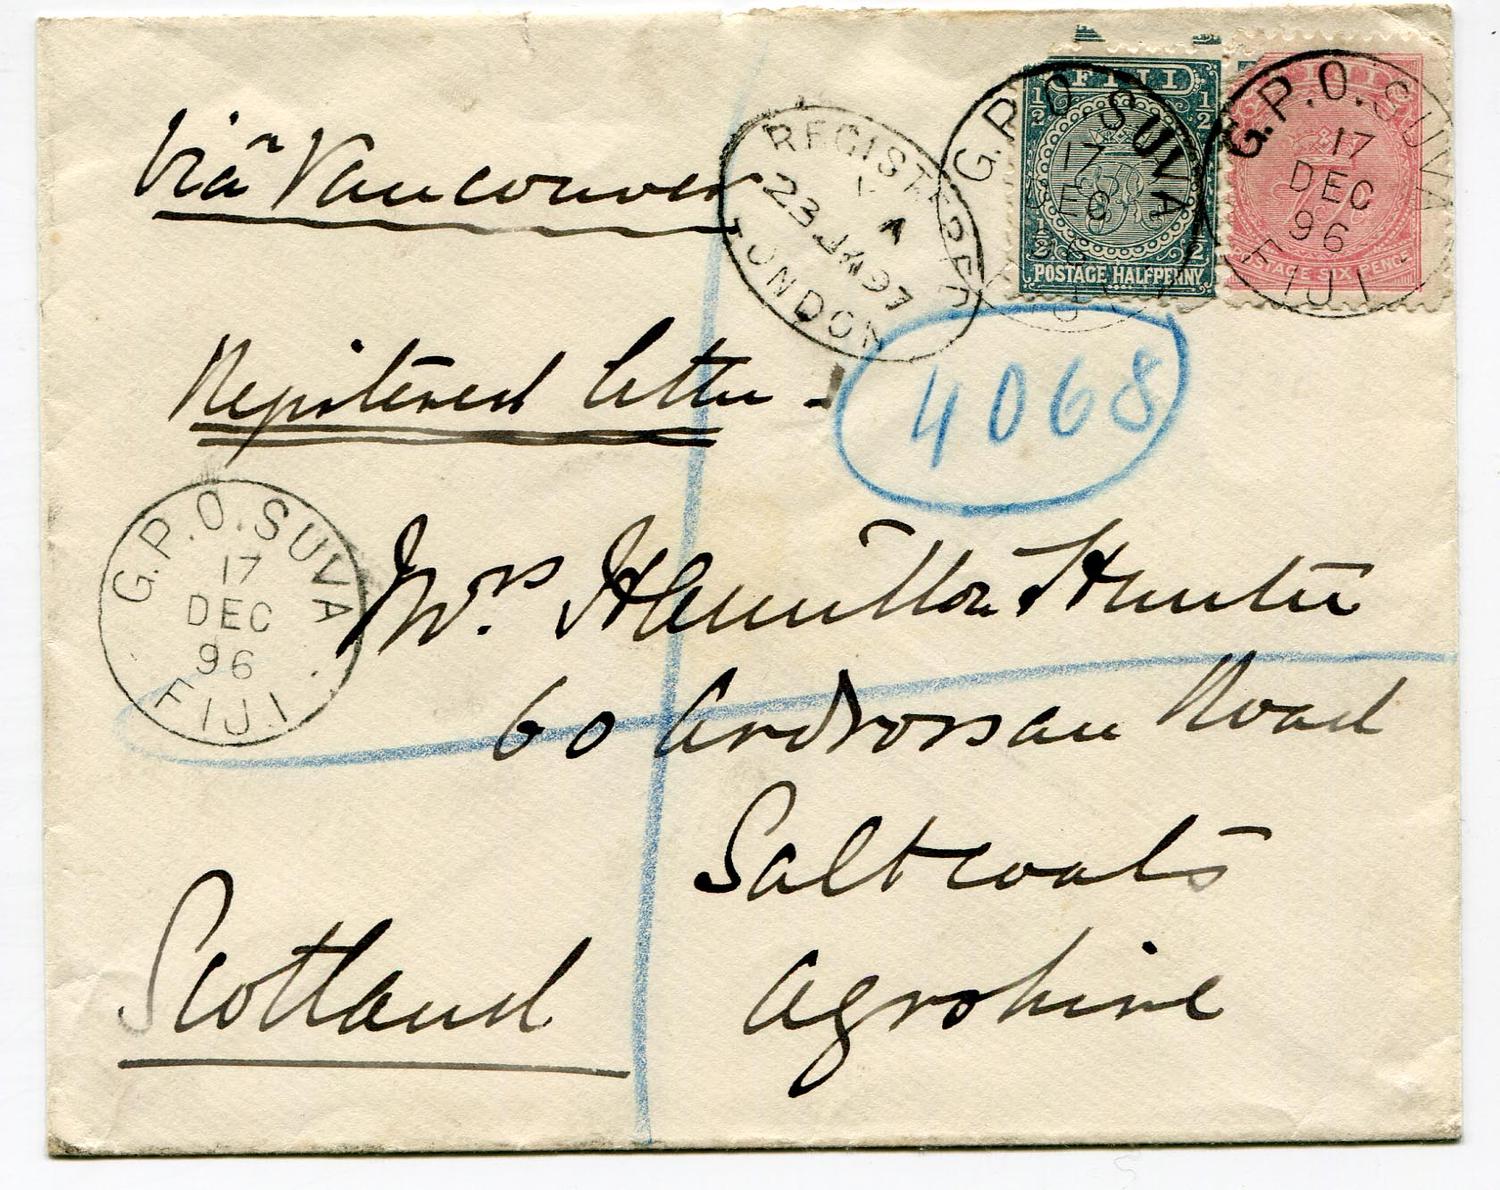 Via Vancouver
Registered letter -
REGISTERED
23 JA 97
LONDON
FIJI
½ ½
½ ½
POSTAGE HALFPENNY
G.P.O. SUVA
17
DEC
96
FIJI
POSTAGE SIX PENCE
G.P.O. SUVA
17
DEC
96
FIJI
4068
G.P.O. SUVA
17
DEC
96
FIJI
Mrs. Hamilton Hunter
60 Ardrossan Road
Saltcoats
Ayrshire
Scotland